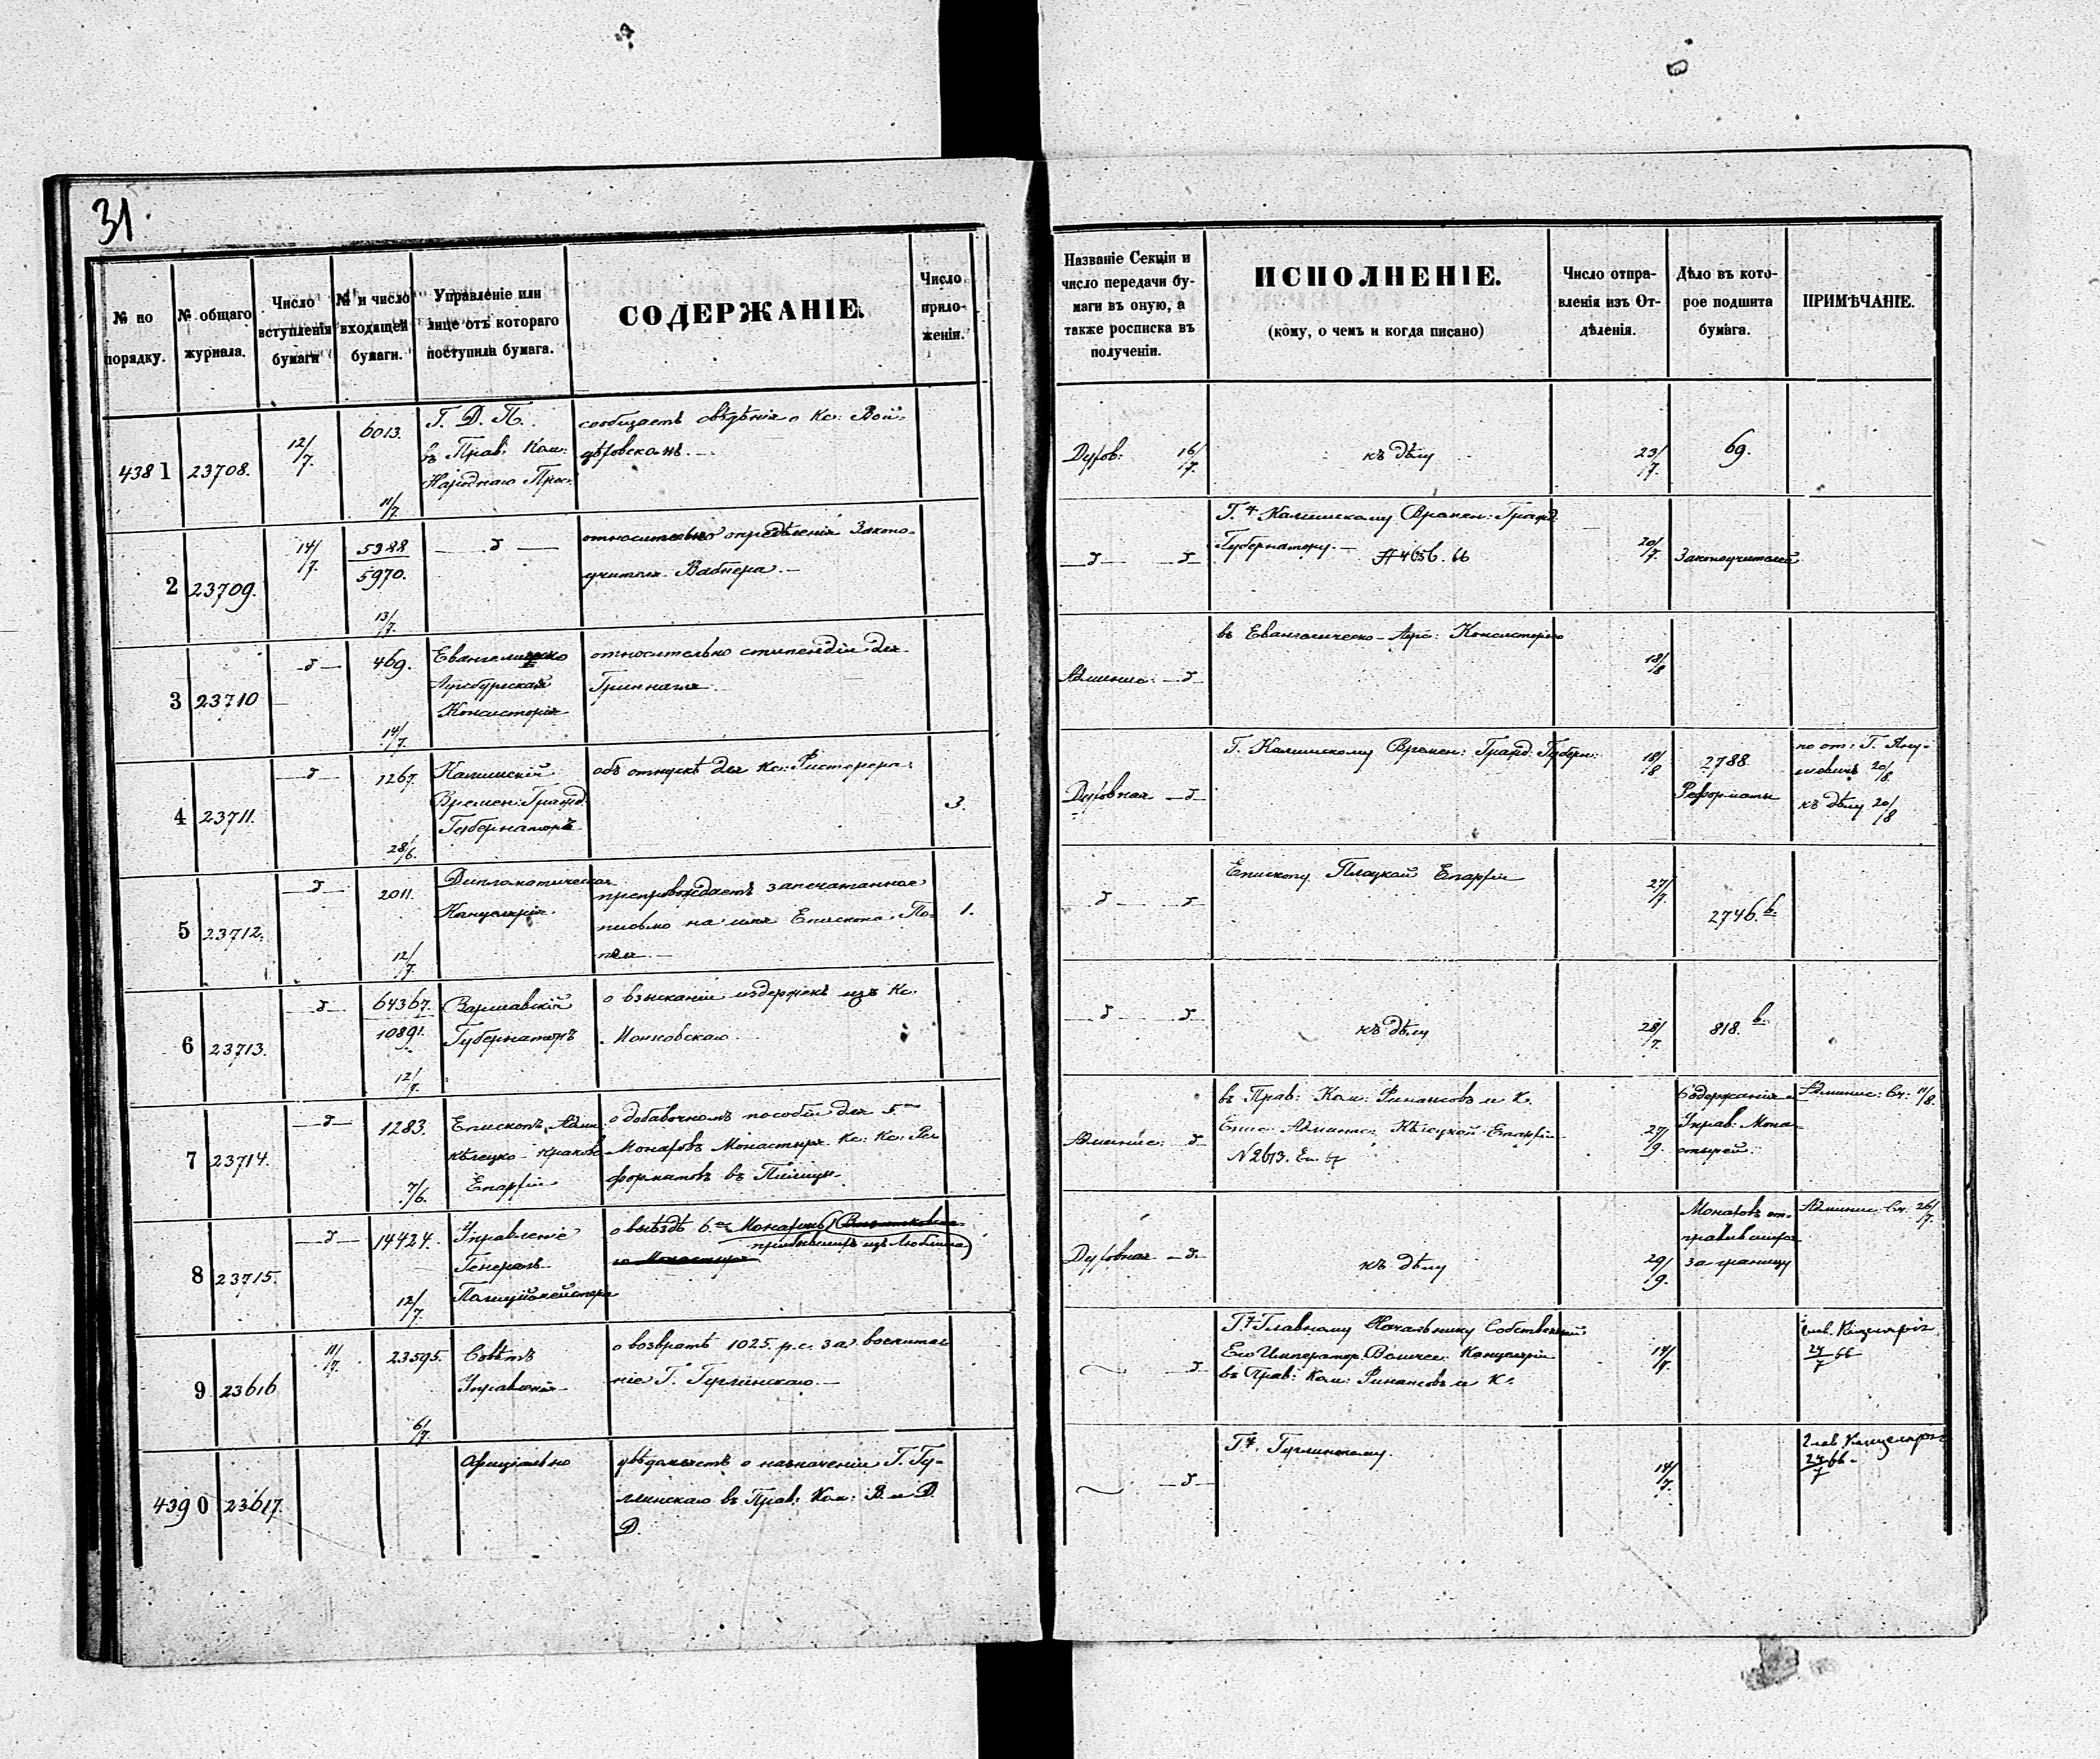 31.
№ по порядку.
№ общаго журнала.
Число вступленія бумаги
№ и число входящей бумаги.
Управленіе или лице отъ котораго поступила бумага.
СОДЕРЖАНІЕ.
Число приложеніи.
Названіе Секціи и число передачи бумаги въ оную, а также росписка въ полученіи.
ИСПОЛНЕНІЕ.
(кому, о чемъ и когда писано)
Число отправленія изъ Отдѣленія.
Дѣло въ которое подшита бумага.
ПРИМѢЧАНІЕ.
4381 23708. 12/7. 6013. 11/7.
Г. Д. П.
въ Прав: Ком:
Народнаго Прос:
сообщаетъ свѣдѣнія о Кс:
Духов: 16/7.
къ дѣлу
23/7. 69.
2 23709. 14/7. 5988 5970. 13/7.
относительно опредѣленія Законо-
учителя Вабнера.
Г. Калишскому Времен: Гражд:
Губернатору.
20/7. Законоучителей
3 23710 469. 14/7.
Евангелическо
Аугсбургская
Консисторія
относительно стипендіи для
Админис:
въ Евангелическо-Аугс: Консисторію
18/8
4 23711. 1267. 28/6.
Калишскій
Времен: Гражд:
Губернаторъ
объ отпускѣ для Кс:
3.
Духовная
Г. Калишскому Времен: Гражд: Губерн:
18/8 2788
Реформаты
по от: Г.
20/8
къ дѣлу 20/8
5 23712. 2011. 12/7.
Дипломатическая
Канцелярія.
препровождаетъ запечатанное
письмо на имя Епископа По-
пеля
1.
Епископу Плоцкой Епархіи
27/7. 2746. b.
6 23713. 64367. 10891. 12/7.
Варшавскій
Губернаторъ
о взысканіи издержекъ изъ Кс.
Монковскаго
къ дѣлу
28/7. 818. b.
7 23714. 1283. 7/6.
Епископъ Адми
Кѣлецко-Краков
Епархіи
о добавочномъ пособіи для 5
Монаховъ Монастыря Кс: Кс: Ре
форматовъ въ Пилицѣ
Админис:
въ Прав: Ком: Финансовъ и К.
Епис. Админис: Кѣлецкой Епархіи
N 2613.
27/9.
Содержаніе и
Управ: Мона-
стырей.
Админис: Сч: 11/8.
8 23715. 14424. 12/7.
Управленіе
Генералъ-
Полицiймейстера
о выѣздѣ 6 Монаховъ
прибывшихъ изъ Люблина)
го Монастыря
Духовная
къ дѣлу
29/9.
Монаховъ от-
правившихся
за границу
Админис: Сч: 26/7.
9 23616 11/7. 23595. 6/7.
Совѣтъ
Управленія
о возвратѣ 1025. р. с. за воспита
ніе Г.
Г. Главному Начальнику Собственной
Его Император. Величес: Канцеляріи
въ Прав: Ком: Финансовъ и К.
14/7.
Глав. Канцелярія
27/7 66
4390 23617.
Официально
увѣдомляетъ о назначеніи Г. Гу-
въ Прав: Ком: В. и Д.
Д.
14/7.
Глав Канцелярія
27/7 66